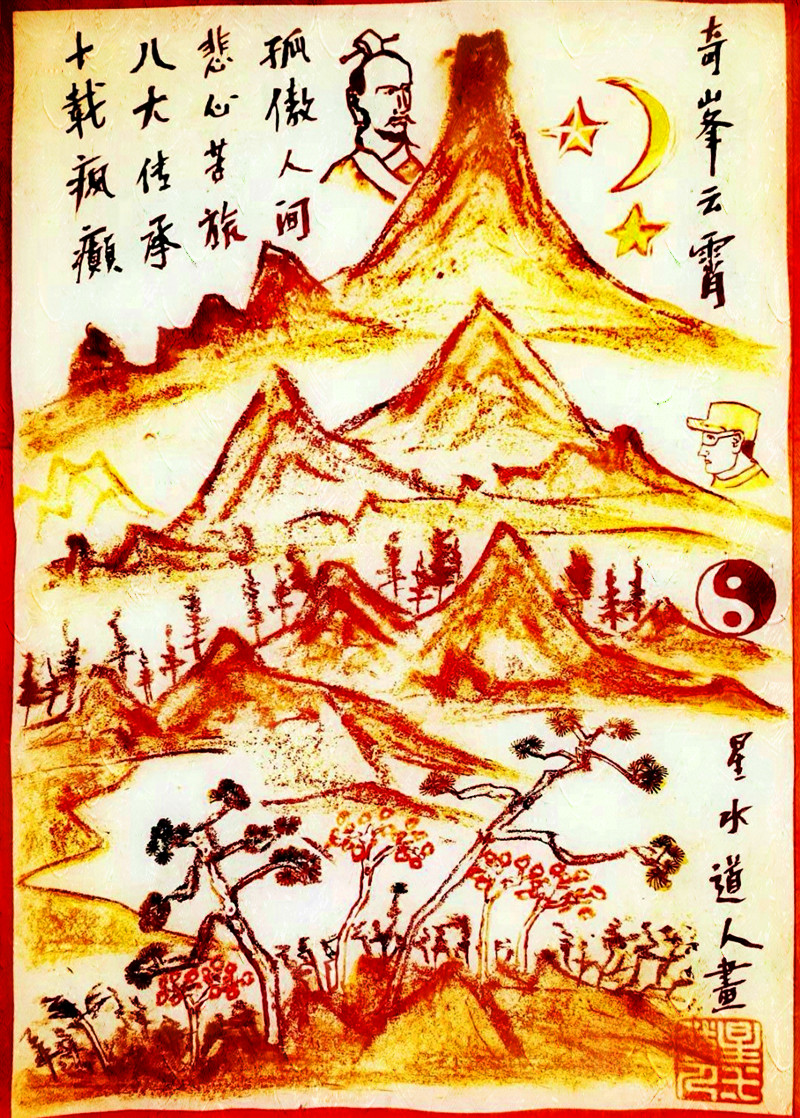 奇峰云霄
孤傲人间
悲心苦旅
八大传承
十载疯癲
星水道人畫